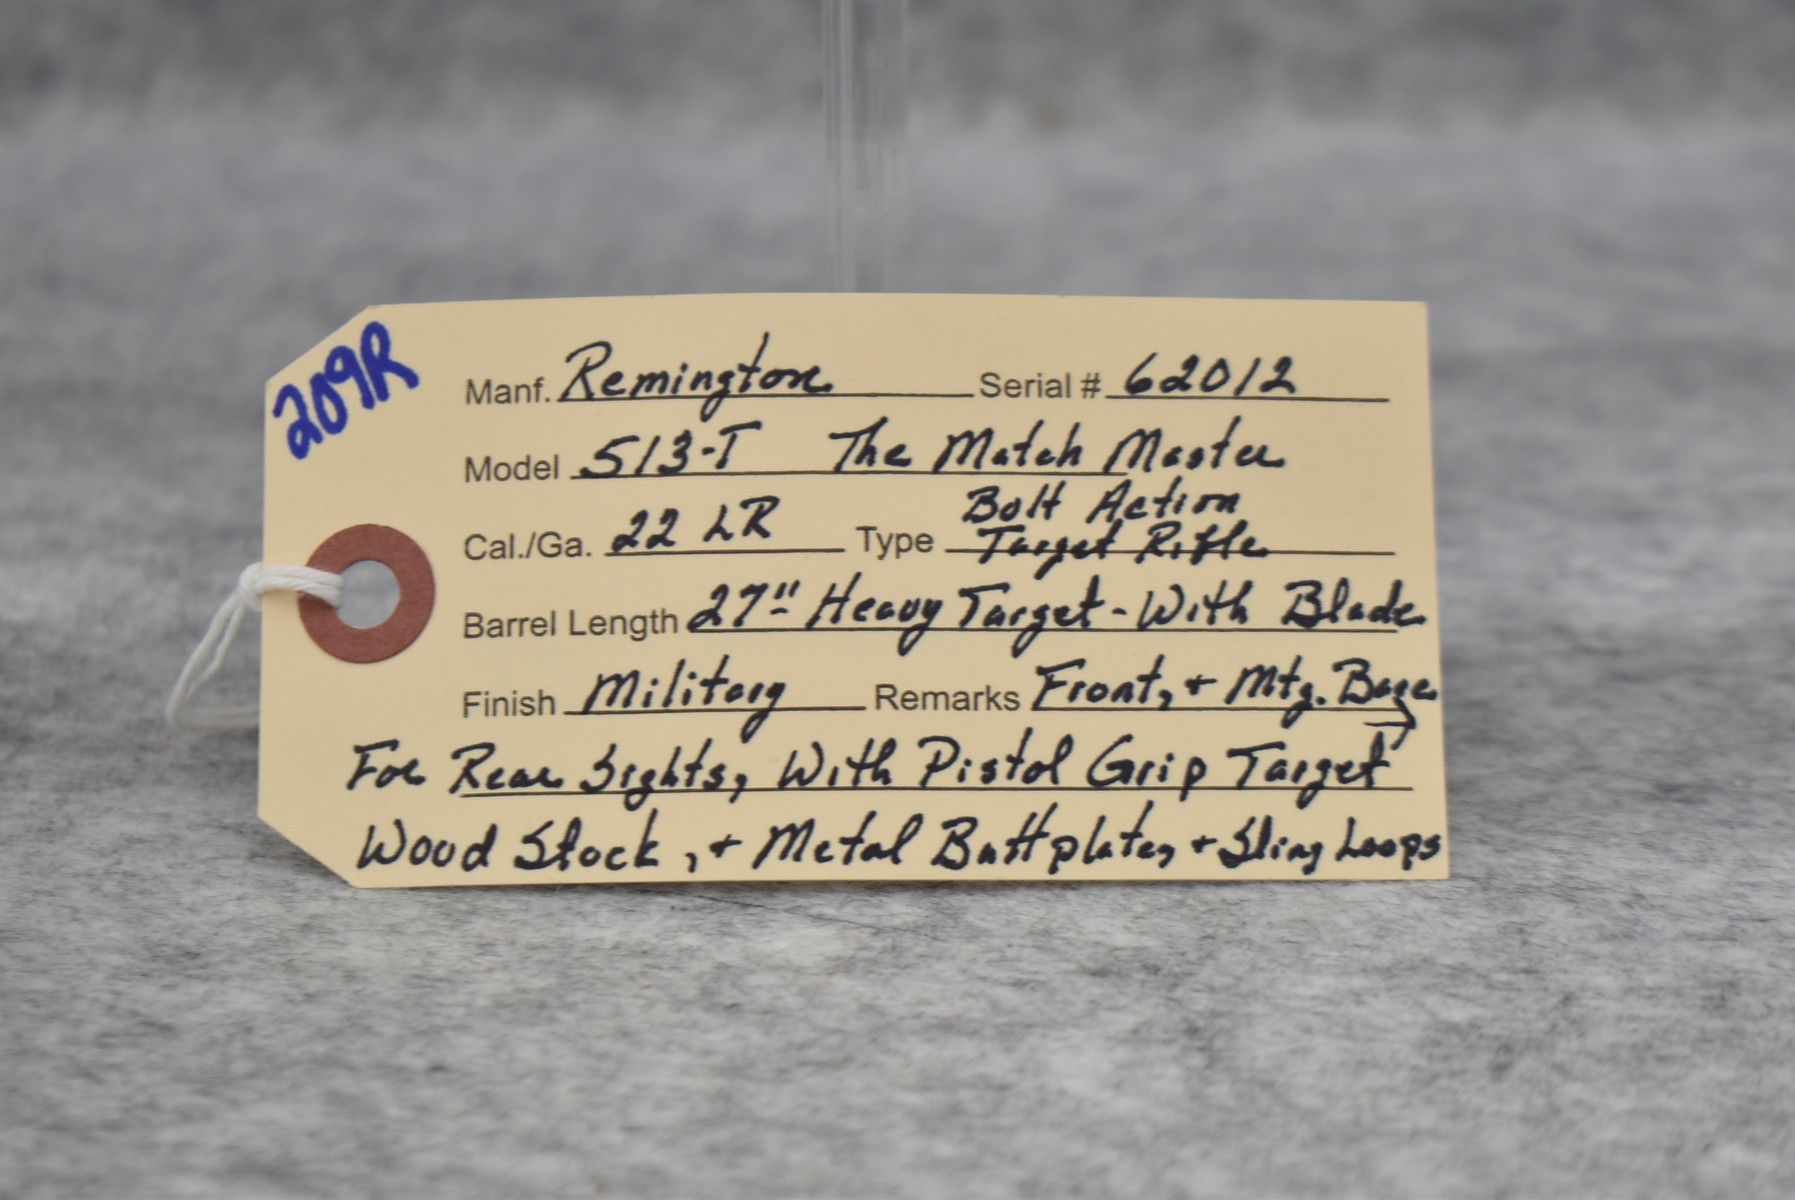 209R
Manf. Remington Serial # 62012
Model 513-T The Match Master
Bolt Action
Cal./Ga. 22 LR Type Target Rifle
Barrel Length 27" Heavy Target - With Blade
Finish Military Remarks Front, + Mtg. Base
For Rear Sights, With Pistol Grip Target
Wood Stock, + Metal Buttplate, + Sling Loops